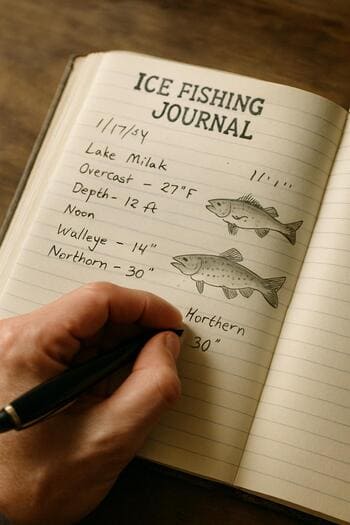 ICE FISHING
JOURNAL
1/17/54
Lake Milak
Overcast - 27°F
Depth- 12 ft
Noon
Walleye - 14"
Northorn - 30"
Horthern
30"